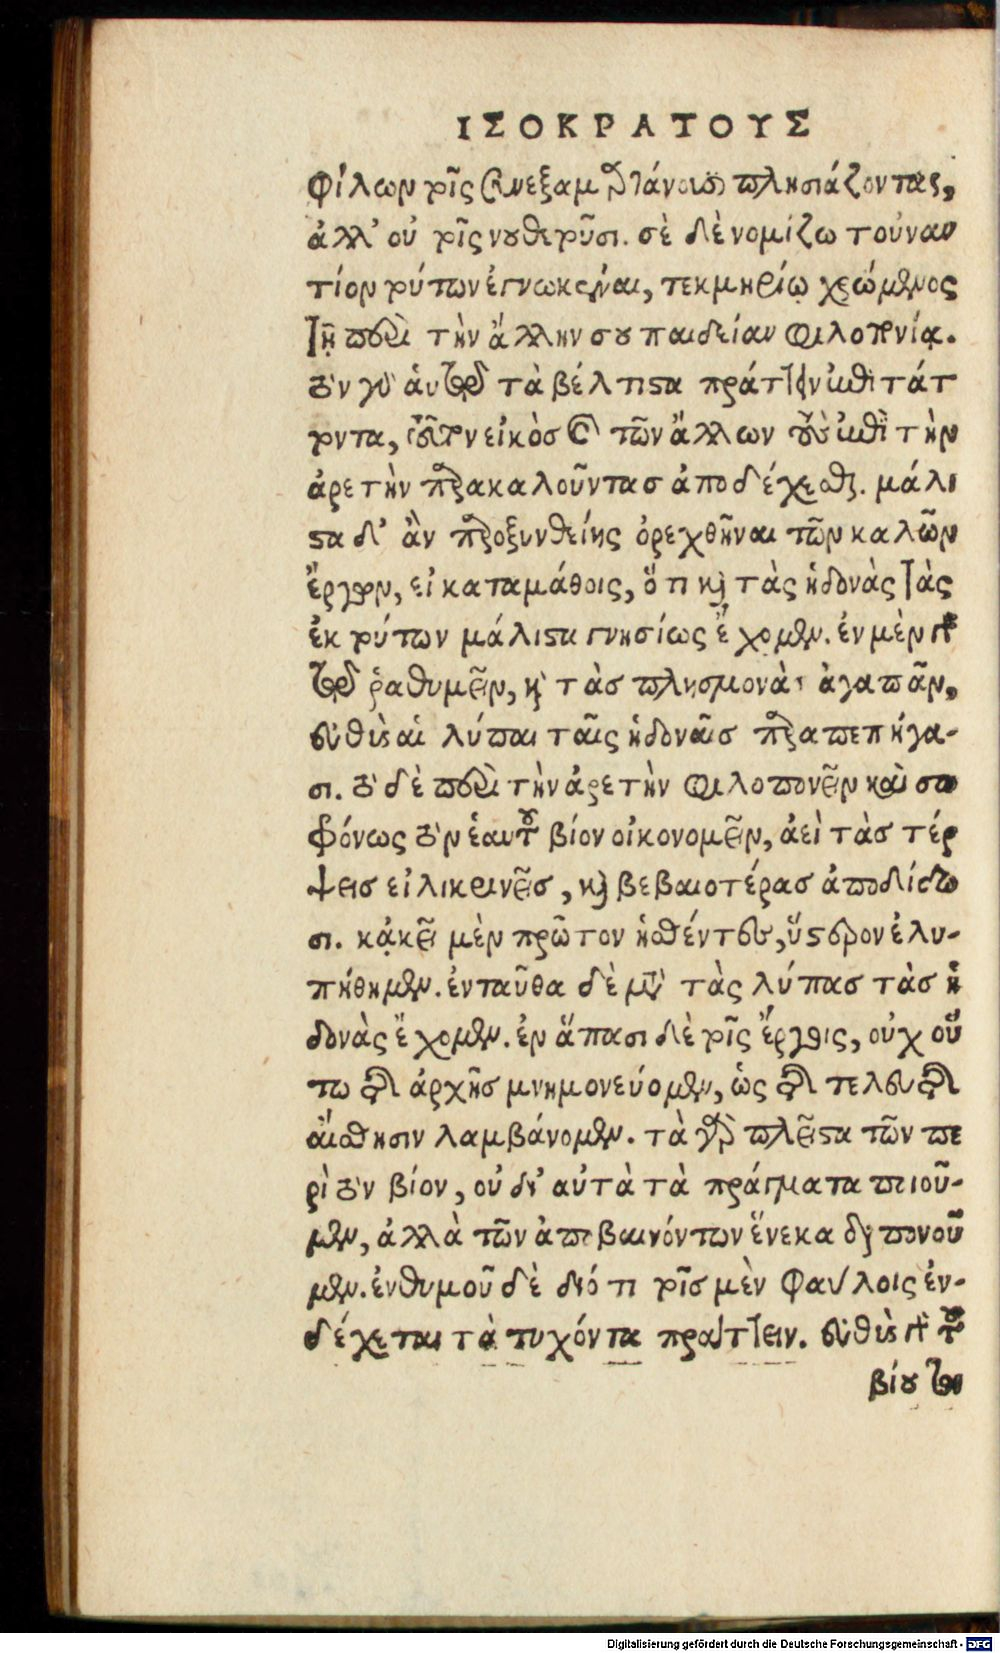 ΙΣΟΚΡΑΤΟΥΣ
φίλων τοῖς συνεξαμαρτάνουσι πλησιάζοντας,
ἀλλ' οὐ τοῖς νουθετοῦσι. σὲ δὲ νομίζω τοὐναν
τίον τούτων ἐγνωκέναι, τεκμηρίῳ χρώμενος
τῇ περὶ τὴν ἄλλην σου παιδείαν φιλοπονίᾳ.
τὸν γὰρ αὑτῷ τὰ βέλτιστα πράττειν ἐπιτάτ
τοντα, τοῦτον εἰκὸς καὶ τῶν ἄλλων τοὺς ἐπὶ τὴν
ἀρετὴν παρακαλοῦντας ἀποδέχεσθαι. μάλι
στα δ' ἂν παροξυνθείης ὀρεχθῆναι τῶν καλῶν
ἔργων, εἰ καταμάθοις, ὅτι καὶ τὰς ἡδονὰς τὰς
ἐκ τούτων μάλιστα γνησίως ἔχομεν. ἐν μὲν γὰρ
τῷ ῥαθυμεῖν, καὶ τὰς πλησμονὰς ἀγαπᾶν,
εὐθὺς αἱ λύπαι ταῖς ἡδοναῖς παραπεπήγα-
σι. τὸ δὲ περὶ τὴν ἀρετὴν φιλοπονεῖν καὶ σω
φρόνως τὸν ἑαυτοῦ βίον οἰκονομεῖν, ἀεὶ τὰς τέρ
ψεις εἰλικρινεῖς, καὶ βεβαιοτέρας ἀποδίδω
σι. κἀκεῖ μὲν πρῶτον ἡσθέντες, ὕστερον ἐλυ-
πήθημεν. ἐνταῦθα δὲ μετὰ τὰς λύπας τὰς ἡ
δονὰς ἔχομεν. ἐν ἅπασι δὲ τοῖς ἔργοις, οὐχ οὕ
τω τῆς ἀρχῆς μνημονεύομεν, ὡς τῆς τελευτῆς
αἴσθησιν λαμβάνομεν. τὰ γὰρ πλεῖστα τῶν πε
ρὶ τὸν βίον, οὐ δι' αὐτὰ τὰ πράγματα ποιοῦ-
μεν, ἀλλὰ τῶν ἀποβαινόντων ἕνεκα διαπονοῦ
μεν. ἐνθυμοῦ δὲ διότι τοῖς μὲν φαύλοις ἐν-
δέχεται τὰ τυχόντα πράττειν. εὐθὺς γὰρ τοῦ
βίου
Digitalisierung gefördert durch die Deutsche Forschungsgemeinschaft - DFG